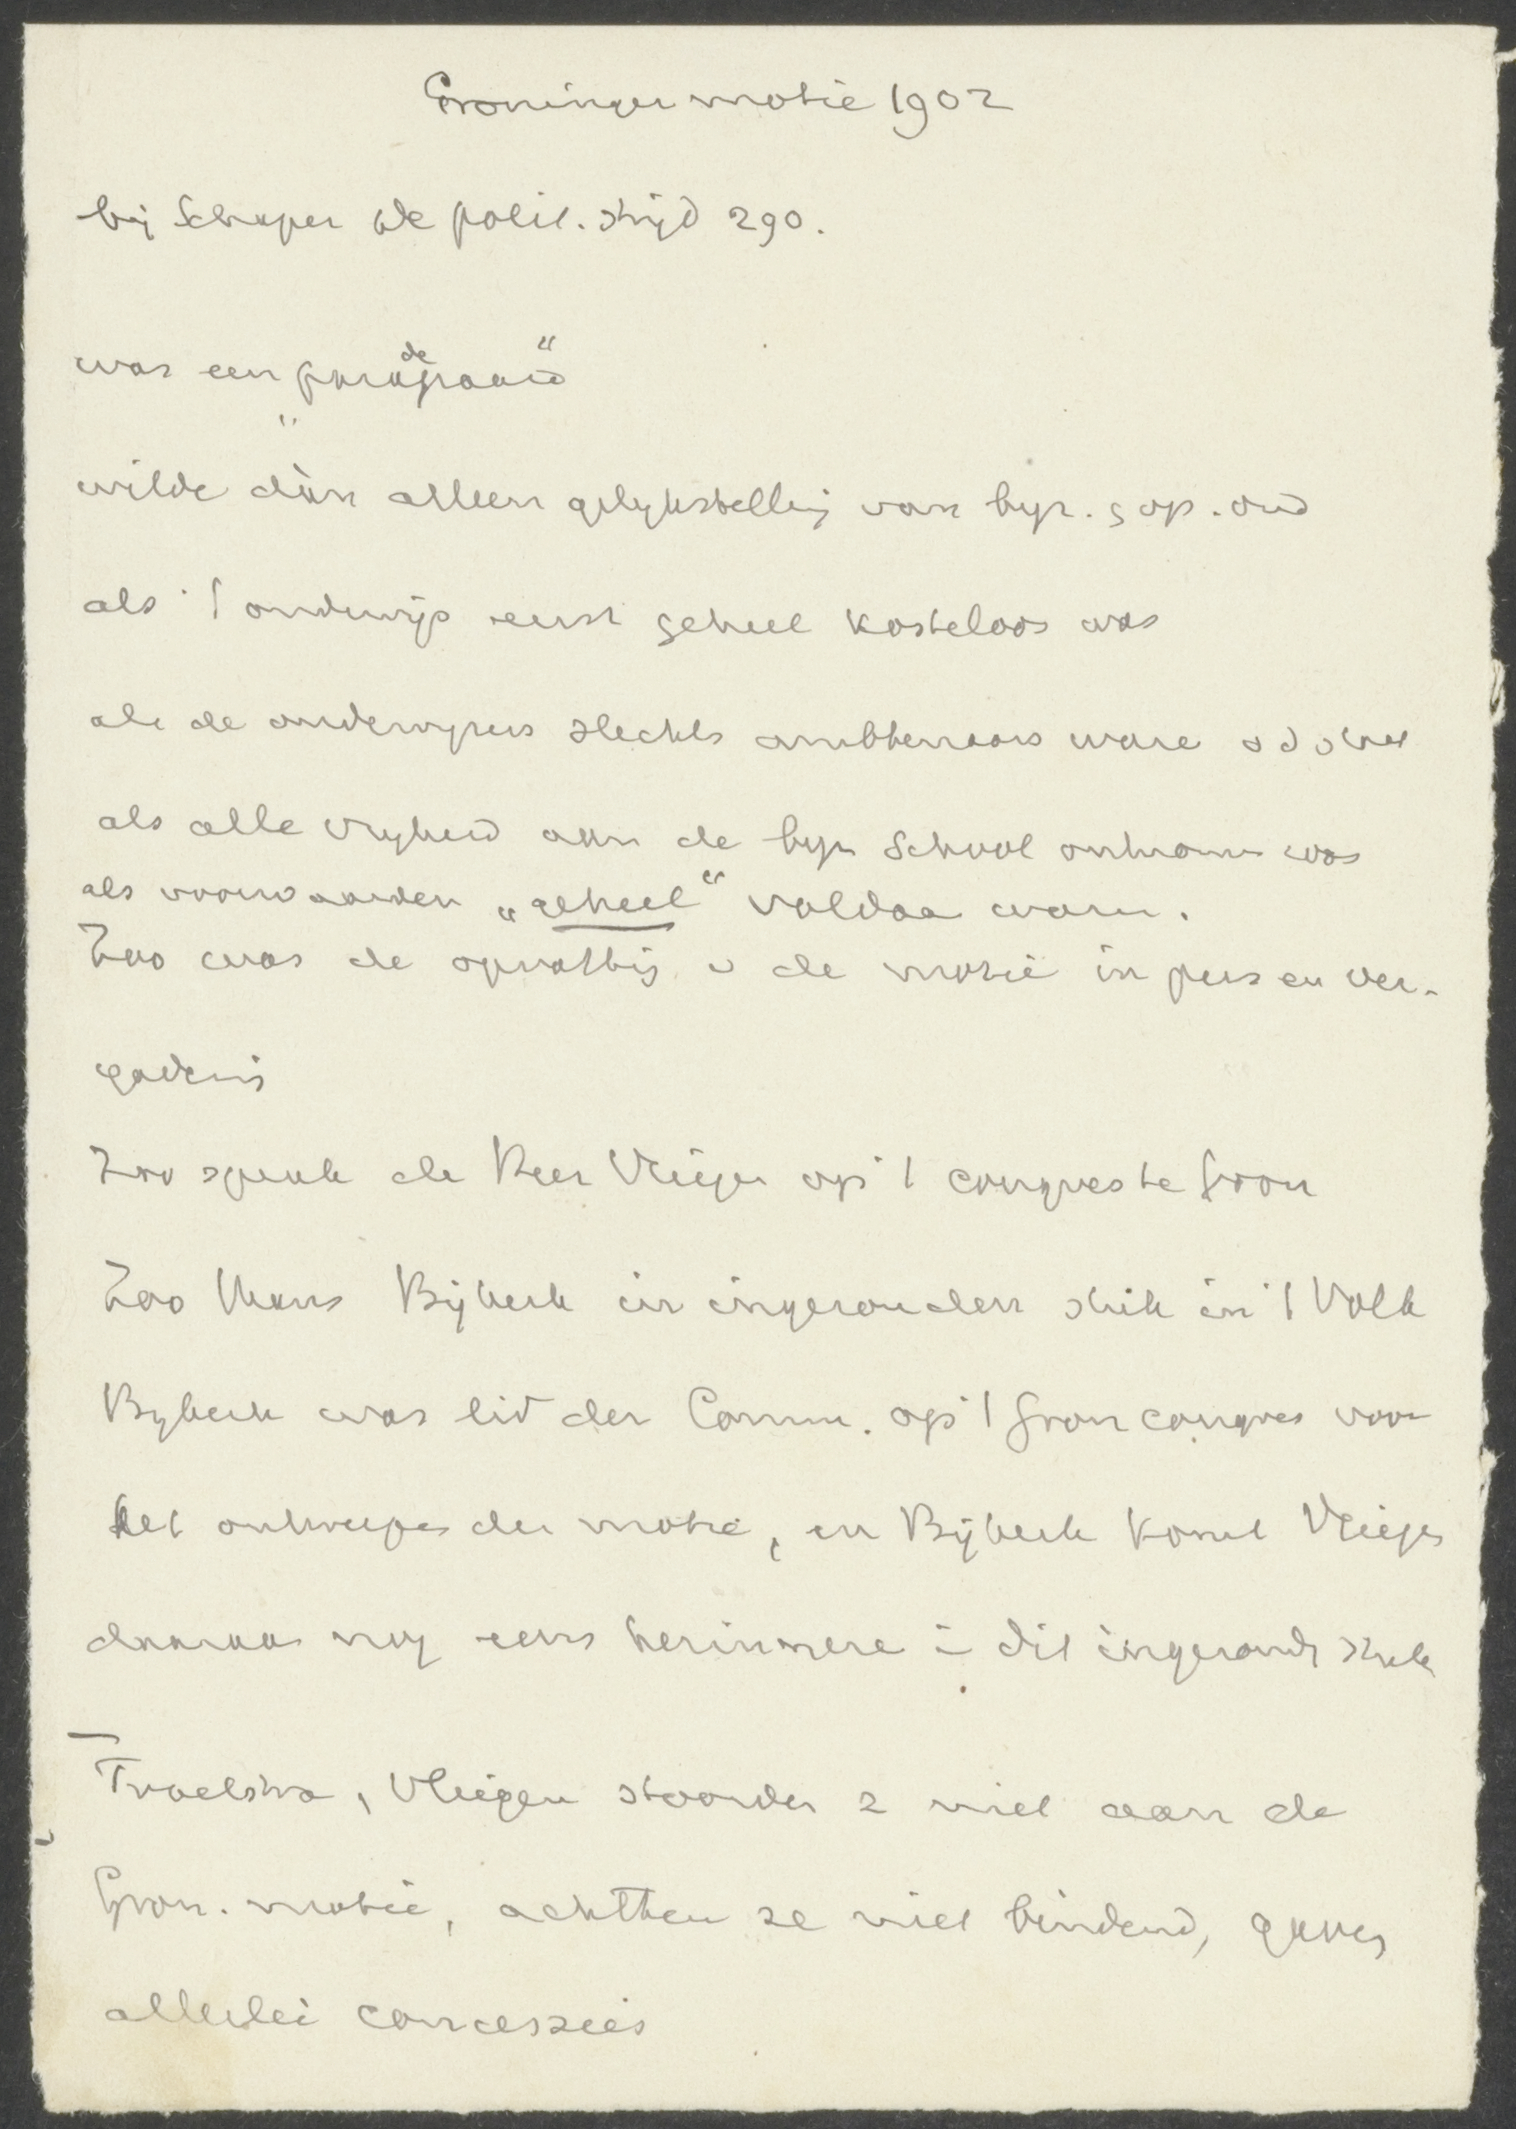 Groninger motie 1902
bij Schaper de polit. strijd 290.
was een paradepaard"
wilde dàn alleen gelykstelling van byz. & op. ond
als 't onderwijs eerst geheel kosteloos was
als de onderwyzers slechts ambtenaars ware v d staat
als alle vryheid aan de byz School ontnomen was
als voorwaarden „geheel" voldaa waren.
Zoo was de opvatting v de motie in pers en ver-
gadering
Zoo sprak de Heer Vliegen op 't congres te Gron
Zoo thans Bijkerk in ingezonden stuk in 't Volk
Bykerk was lid der Comm. op 't Gron congres voor
het ontwerpen der motie, en Bijkerk komt Vliegen
daaraan nog eens herinnere in dit ingezonde stuk
Troelstra, Vliegen stoorden z niet aan de
Gron. motie, achtten ze niet bindend, gaven
allerlei concessies